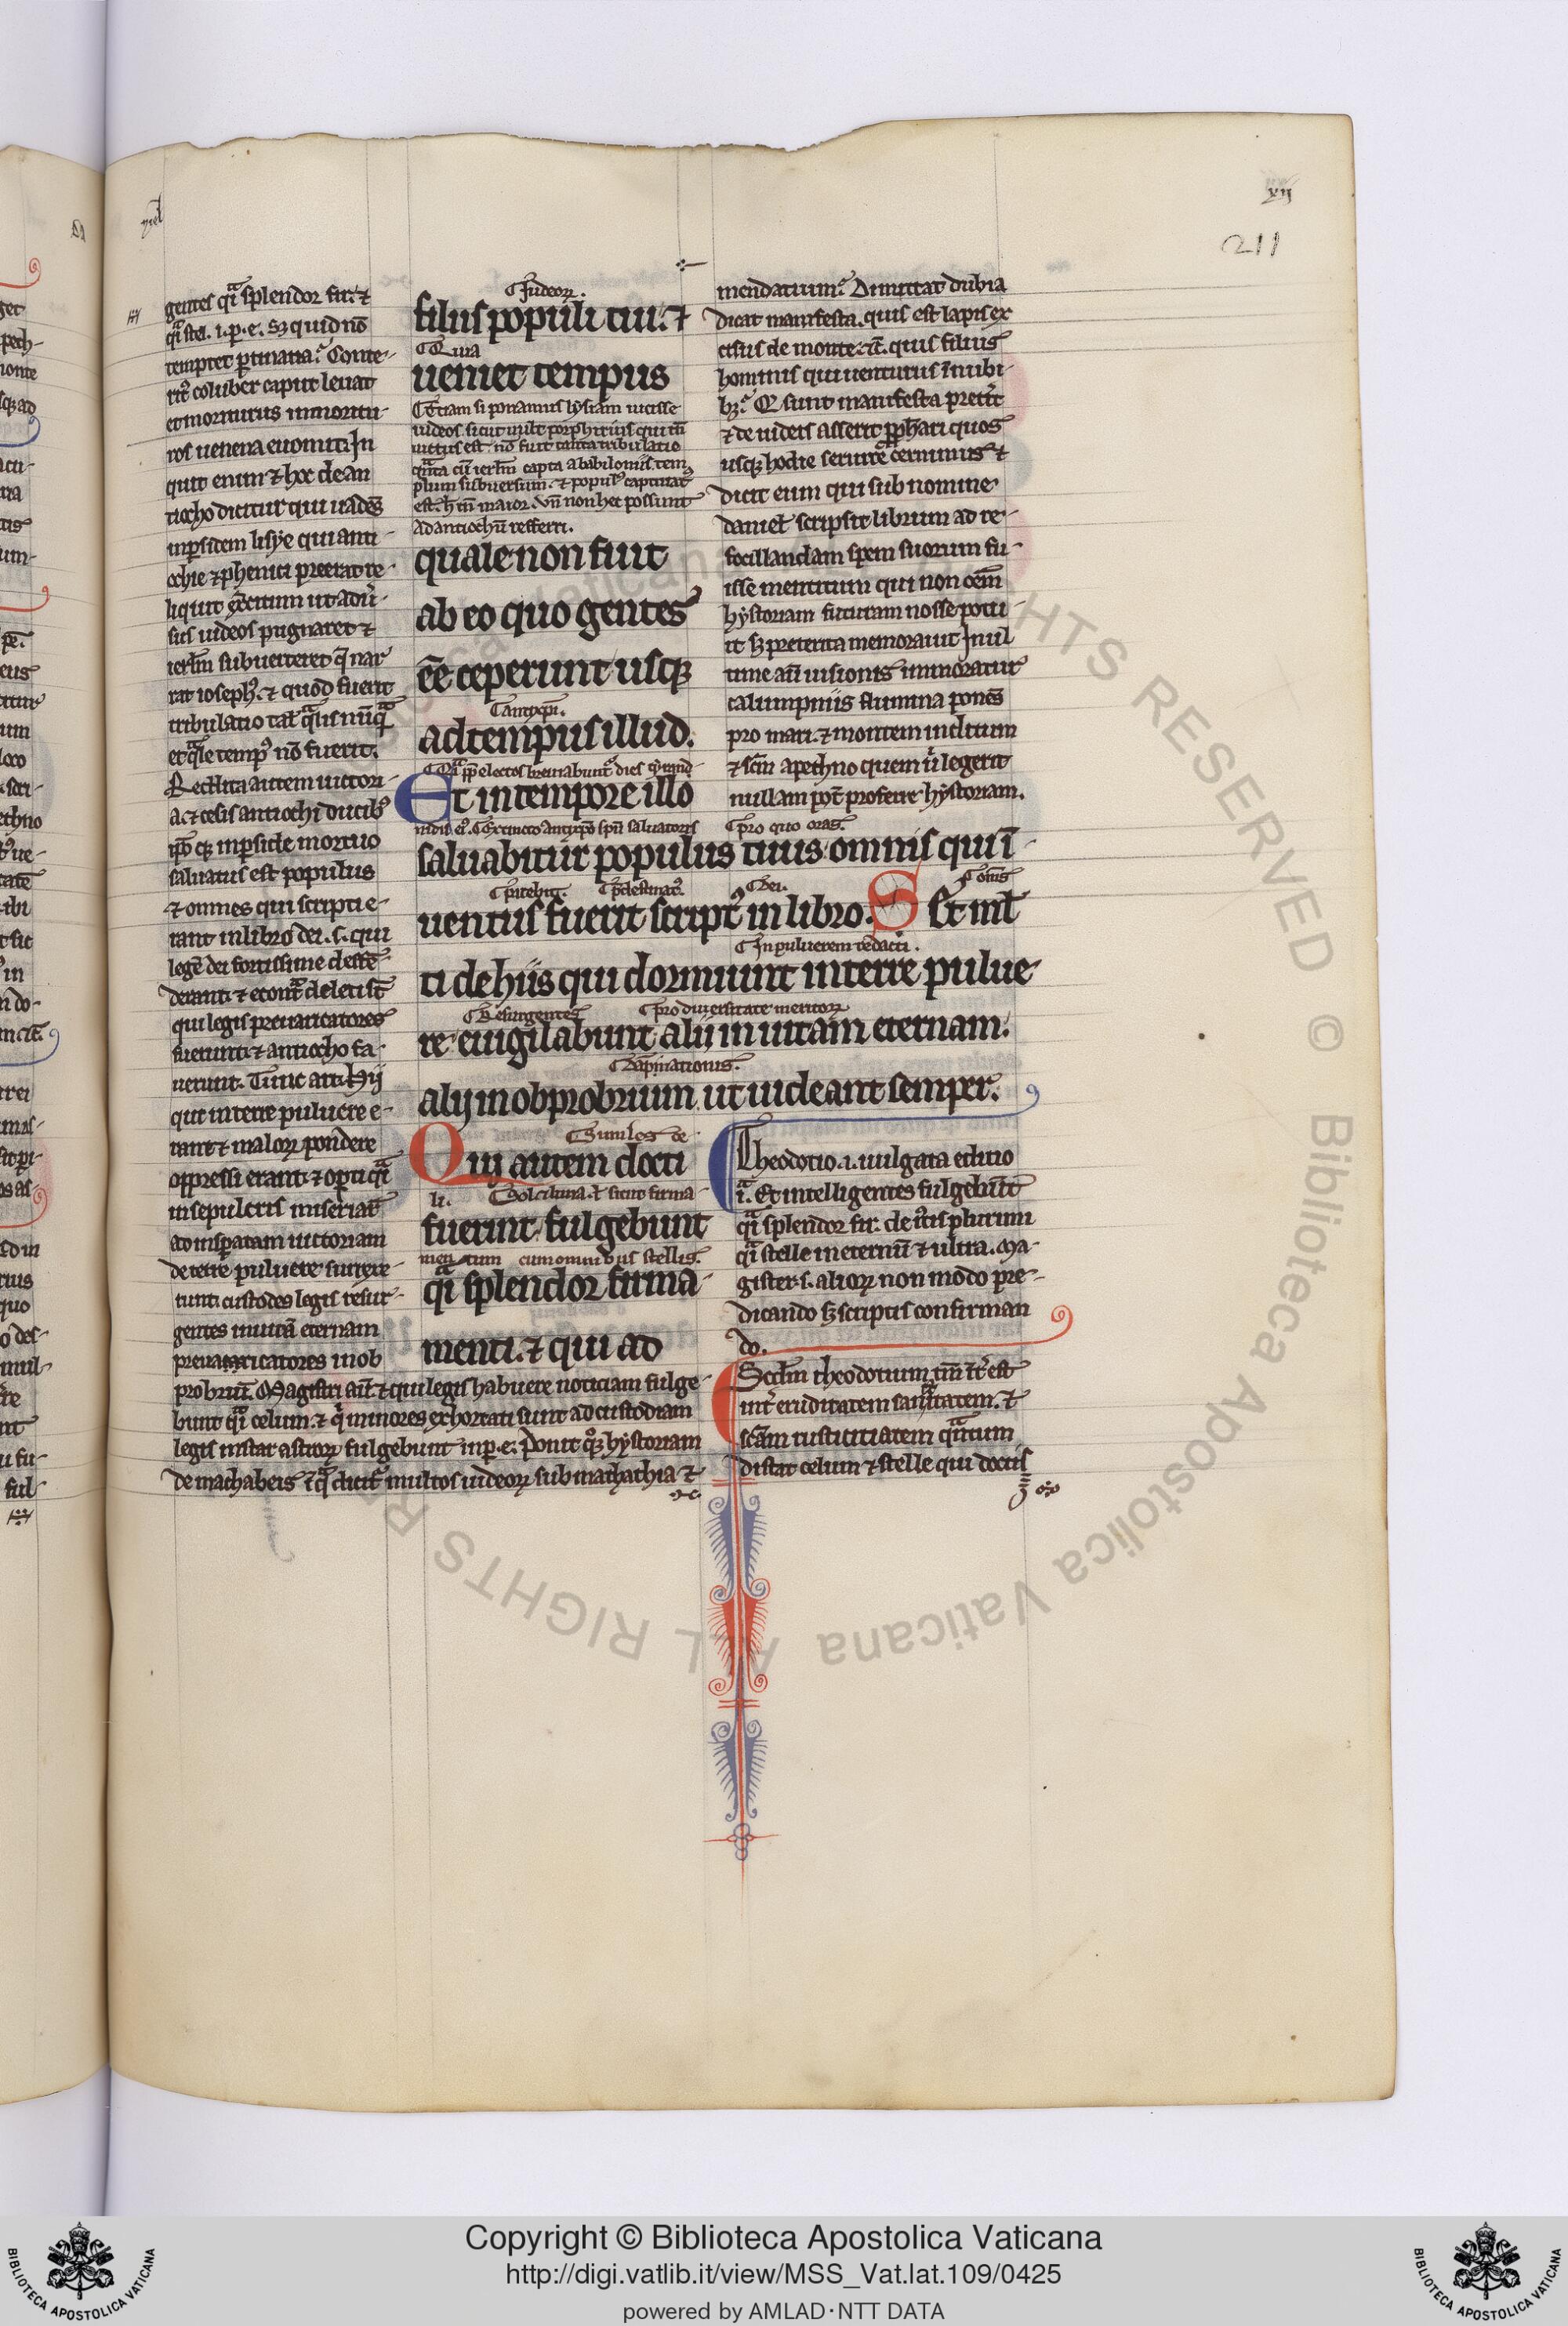 xij
211
gentes q̄i splendor fir. ⁊
q̄i stel. i. p. e. Sꝫ quid nō
temptet ꝑtinatia? Conte-
rit᷑ coluber caput leuat
et moriturus in moritu-
ros uenena euomit. In
quit enim ⁊ hoc de an
tiocho dicitur qui uadēs
in ꝑsidem lisye qui anti-
ochie ⁊ phenici preerat re-
liquit ex̄citum ut adu᷑-
sus iudeos pugnaret ⁊
ierl̄m subuerteret q̄ nar
rat ioseph᷒. ⁊ quod fuerit
tribulatio tal̄ q̄lis nūq̄
et q̄le temp᷒ nō fuerit.
Reddita autem uictori-
a ⁊ cesis antiochi ducib᷒
ip̄o qꝫ in ꝑside mortuo
saluatus est populus
⁊ omnes qui scripti e-
rant in libro dei. s. qui
legē dei fortissime deffē-
derant. ⁊ econt̄ deleti st̄
qui legis preuaricatores
fuerunt. ⁊ antiocho fa-
uerunt. Tunc ait. Hij
qui in terre puluere e-
rant ⁊ maloꝝ pondere
oppressi erant. ⁊ opti q̄i
in sepulcris miseriaꝝ
ad insperatam uictoriam
de terre puluere surrexe-
runt. custodes legis resur-
gentes in uitā eternam
preuaricatores in ob
probriū. Magistri aūt. ⁊ qui legis habuere noticiam fulge-
bunt q̄i celum. ⁊ q̄ minores exhortati sunt ad custodiam
legis instar astroꝝ fulgebunt in p. e. Ponit qͦꝫ hystoriam
de machabeis ī q̄ dicit᷑ multos iudeoꝝ sub mathathia ⁊
Iudeoꝝ.
filiis populi tui. ⁊
Quia
ueniet tempus
Etiam si ponamus lysiam uicisse
iudeos. sicut uult porphirius qui tn̄
uictus est. nō fuit tanta tribulatio
q̄nta cū ierl̄m capta a babiloniis. tem
plum subuersum. ⁊ popul᷒ captiuat᷒
est. h̄ tn̄ maior. vn̄ non hec possunt
ad antiochū refferri.
quale non fuit
ab eo quo gentes
ēē ceperunt usqꝫ
Antix̄pi.
ad tempus illud.
Et in tempore illo
saluatoris
pro quo oras.
saluabitur populus tuus. omnis qui ī-
dei.
uentus fuerit script᷒ in libro. Et ml̄
In puluerem redacti.
ti de hiis qui dormiunt in terre pulue-
Resurgentes
pro diuersitate meritoꝝ
re. euigilabunt. alij in uitam eternam.
alij in obprobrium. ut uideant semper.
Similes ce-
Qui autem docti
li.
fuerint. fulgebunt
mentum cum omnibus stellis.
q̄i splendor firma-
menti. ⁊ qui ad
mendatium? Dimittat dubia
dicat manifesta. quis est lapis ex
cisus de monte. ⁊c̄. quis filius
hominis qui uenturus ē in nubi-
bꝫ? Que sunt manifesta pret᷑it
⁊ de uideis asserit ꝓphari quos
usqꝫ hodie seruire cernimus ⁊
dicit eum qui sub nomine
daniel̄ scripsit librum ad re-
focillandam spem suorum fu-
isse mentitum qui non oēm
hystoriam futuram nosse potu-
it sꝫ preterita memorauit. In ul
time aūt uisionis immoratur
calumpniis flumina ponēs
pro mari. ⁊ montem inclitum
⁊ scm̄ apethno quem ubi legerit
nullam pot̄ proferre hystoriam.
Theodotio. i. uulgata editio
i. Et intelligentes fulgebūt
q̄i splendor fir. de iustis plurimi
q̄i stelle in eternū ⁊ ultra. Ma-
gister. s. alioꝝ non modo pre-
dicando sꝫ scriptis confirman
do.
Scd̄m theodotium tm̄ īt᷑est
int᷑ eruditatem sanctitatem. ⁊
scām rusticitatem q̄ntum
distat celum ⁊ stelle qui doctis
Copyright © Biblioteca Apostolica Vaticana
http://digi.vatlib.it/view/MSS_Vat.lat.109/0425
powered by AMLAD·NTT DATA
BIBLIOTECA APOSTOLICA VATICANA
BIBLIOTECA APOSTOLICA VATICANA
ALL RIGHTS RESERVED © Biblioteca Apostolica Vaticana